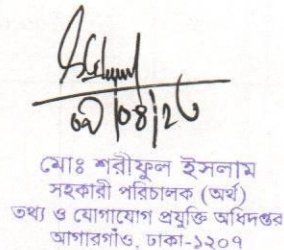 মোঃ শরীফুল ইসলাম
সহকারী পরিচালক (অর্থ)
তথ্য ও যোগাযোগ প্রযুক্তি অধিদপ্তর
আগারগাঁও, ঢাকা-১২০৭